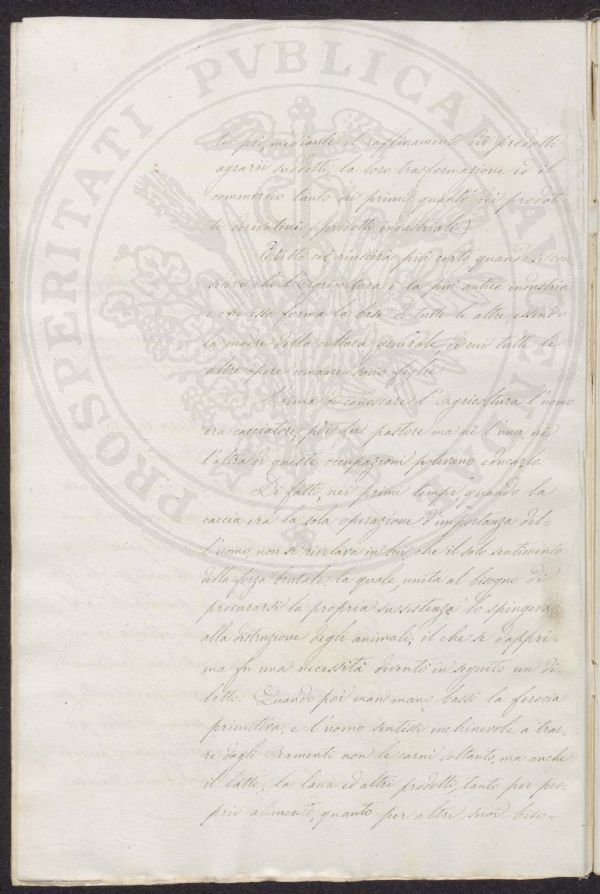 PROSPERITATI PVBLICAE
te poi, mediante il raffinamento dei prodotti
agrarii suddetti, la loro trasformazione ed il
commercio tanto dei primi quanto dei prodot-
ti derivativi, prodotti industriali.)
E tutto ciò riuscirà più certo quando si con
sideri che l'Agricoltura è la più antica industria
e che essa forma la base di tutte le altre, essendo
la madre della cultura generale, di cui tutte le
altre opere umane sono figlie.
Prima di conoscere l'Agricoltura l'uomo
era cacciatore, poi fu pastore ma nè l'una nè
l'altra di queste occupazioni potevano educarlo.
Di fatti, nei primi tempi, quando la
caccia era la sola operazione d'importanza del-
l'uomo, non si rivelava in lui che il solo sentimento
della forza brutale la quale, unita al bisogno di
procurarsi la propria sussistenza lo spingeva
alla distruzione degli animali; il che se dappri-
ma fu una necessità diventò in seguito un di-
letto. Quando poi man mano bassò la ferocia
primitiva, e l'uomo sentissi inchinevole a trar-
re dagli armenti non le carni soltanto, ma anche
il latte, la lana ed altri prodotti, tanto per pro-
prio alimento, quanto per altri suoi biso-